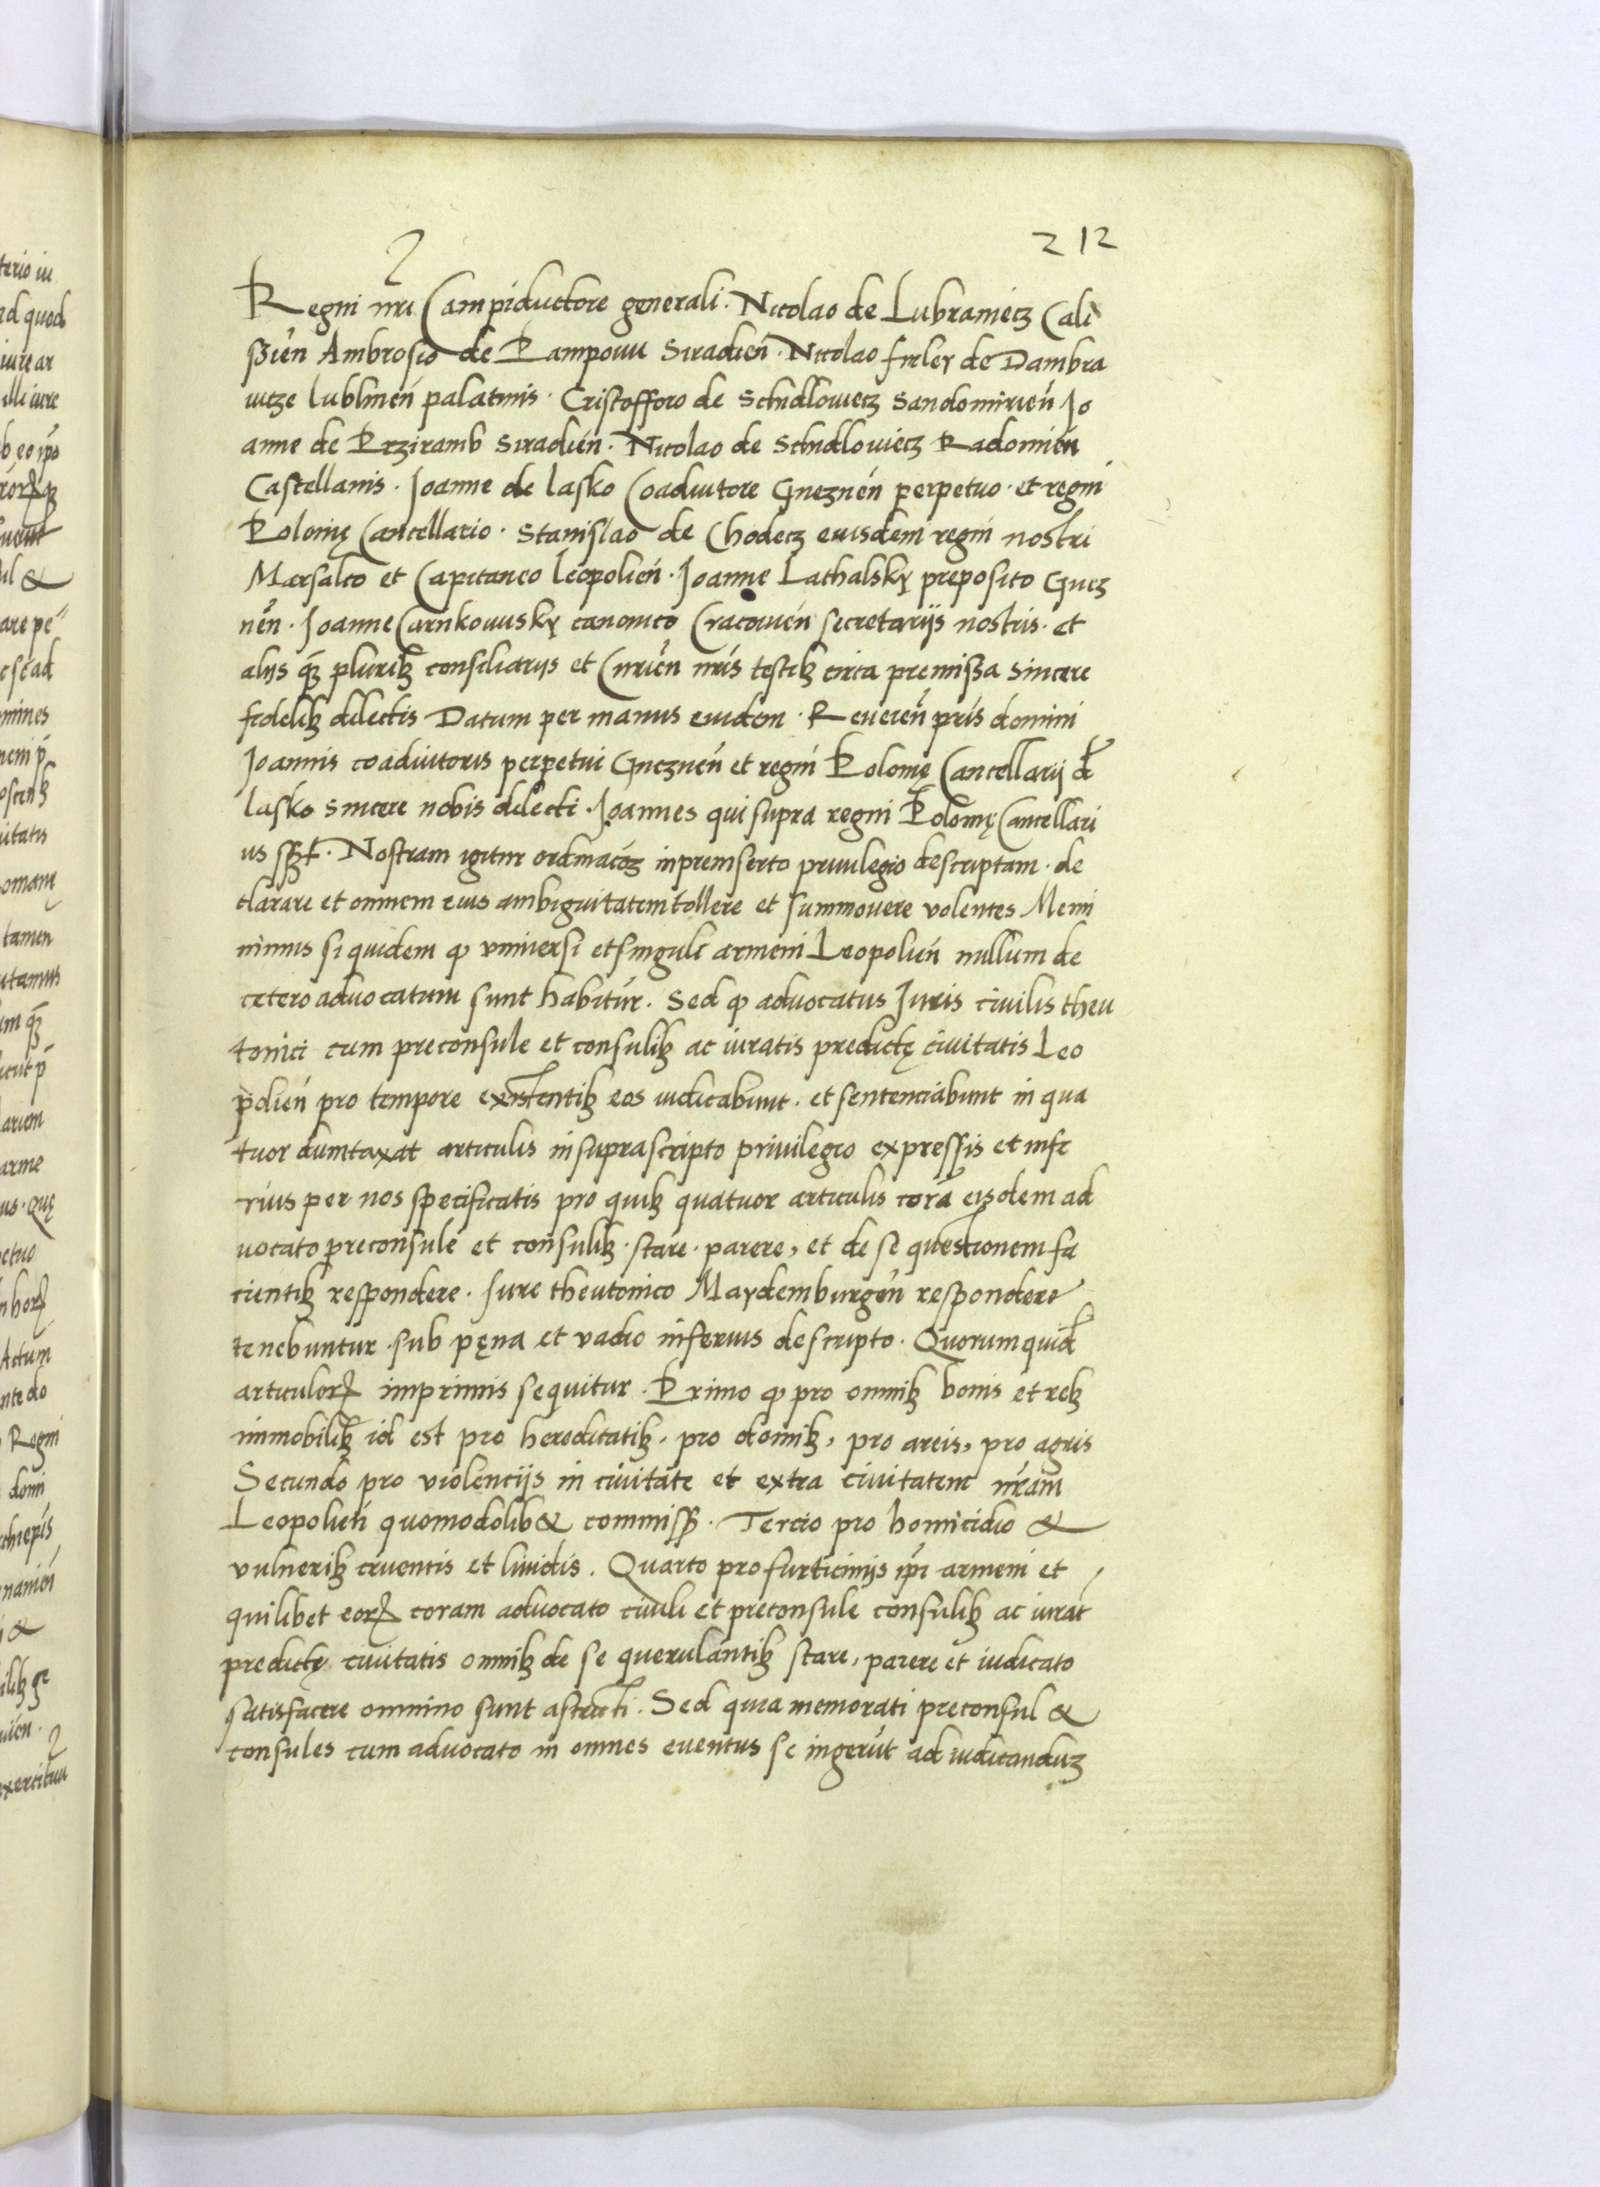 212
Regni nrī Campiductore generali · Nicolao de Lubraniecz Cali
ßień Ambrosio de Pampouu Siradień · Nicolao firley de Dambra
uicze lublineń palatinis · Cristofforo de Schidlowiecz Sandomirień Jo
anne de Prziramb Siradień · Nicolao de Schidlowiecz Radomień
Castellanis · Joanne de lasko Coadiutore Gnezneń perpetuo · et regni
Polonię Cancellario · Stanislao de Chodecz eiusdem regni nostri
Marsalco et Capitaneo leopolień · Joanne Lathalsky preposito Gnez
neń · Joanne Carnkouusky canonico Cracouień secretarijs nostris · et
alijs qꝫ pluribꝫ consiliarijs et Curień nrīs testibꝫ circa premißa sincere
fidelibꝫ dilectis Datum per manus eiudem · Reuereń prīs domini
Joannis coadiutoris perpetui Gnezneń et regni Polonię Cancellarij de
lasko sincere nobis dilecti · Joannes qui supra regni Polonię Cancellari
us ßßt · Nostram igitur ordinacōꝫ inpreinserto priuilegio descriptam · de
clarare et omnem eius ambiguitatem tollere et summouere volentes Memi
nimus si quidem ꝙ vniuersi et singuli armeni Leopolień nullum de
cetero aduocatum sunt habitur̄ · Sed ꝙ aduocatus Juris ciuilis theu
tonici cum preconsule et consulibꝫ ac iuratis predictę ciuitatis Leo
polień pro tempore existentibꝫ eos iudicabunt · et sentenciabunt in qua
tuor dumtaxat articulis in suprascripto priuilegio expressis et infe
rius per nos specificatis pro quibꝫ quatuor articulis corā eisdem ad
uocato preconsule et consulibꝫ · stare · parere, et de se questionem fa
cientibꝫ respondere · Jure theutonico Maydemburgeń respondere
tenebuntur · sub pęna et vadio inferius descripto · Quorum quid
articuloꝝ imprimis sequitur · Primo ꝙ pro omnibꝫ bonis et rebꝫ
immobilibꝫ id est pro hereditatibꝫ, pro domibꝫ, pro areis, pro agris
Secundo pro violencijs in ciuitate et extra ciuitatem nrām
Leopolień quomodolib& commiss̄ · Tercio pro homicidio &
vulneribꝫ cruentis et liuidis · Quarto pro furticinijs ip̄i armeni et
quilibet eoꝝ coram aduocato ciuili et preconsule consulibꝫ ac iurat̄
predictę ciuitatis omnibꝫ de se querulantibꝫ stare, parere et iudicato
satisfacere omnino sunt astricti · Sed quia memorati preconsul &
consules cum aduocato in omnes euentus se ingerūt ad iudicanduꝫ